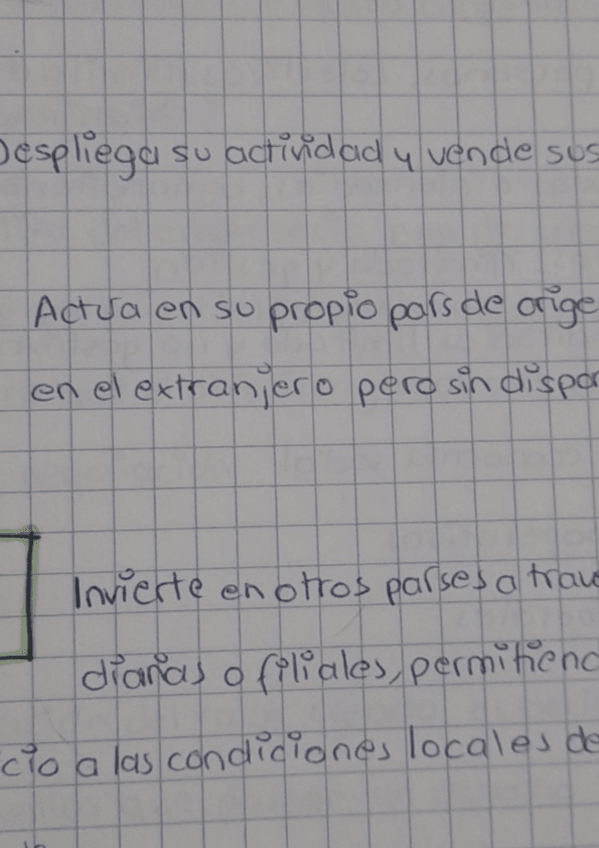 Despliega su actividad y vende sus
Actúa en su propio país de orige
en el extranjero pero sin dispon
Invierte en otros países a trav
diarias o filiales, permitiend
cio a las condiciones locales de